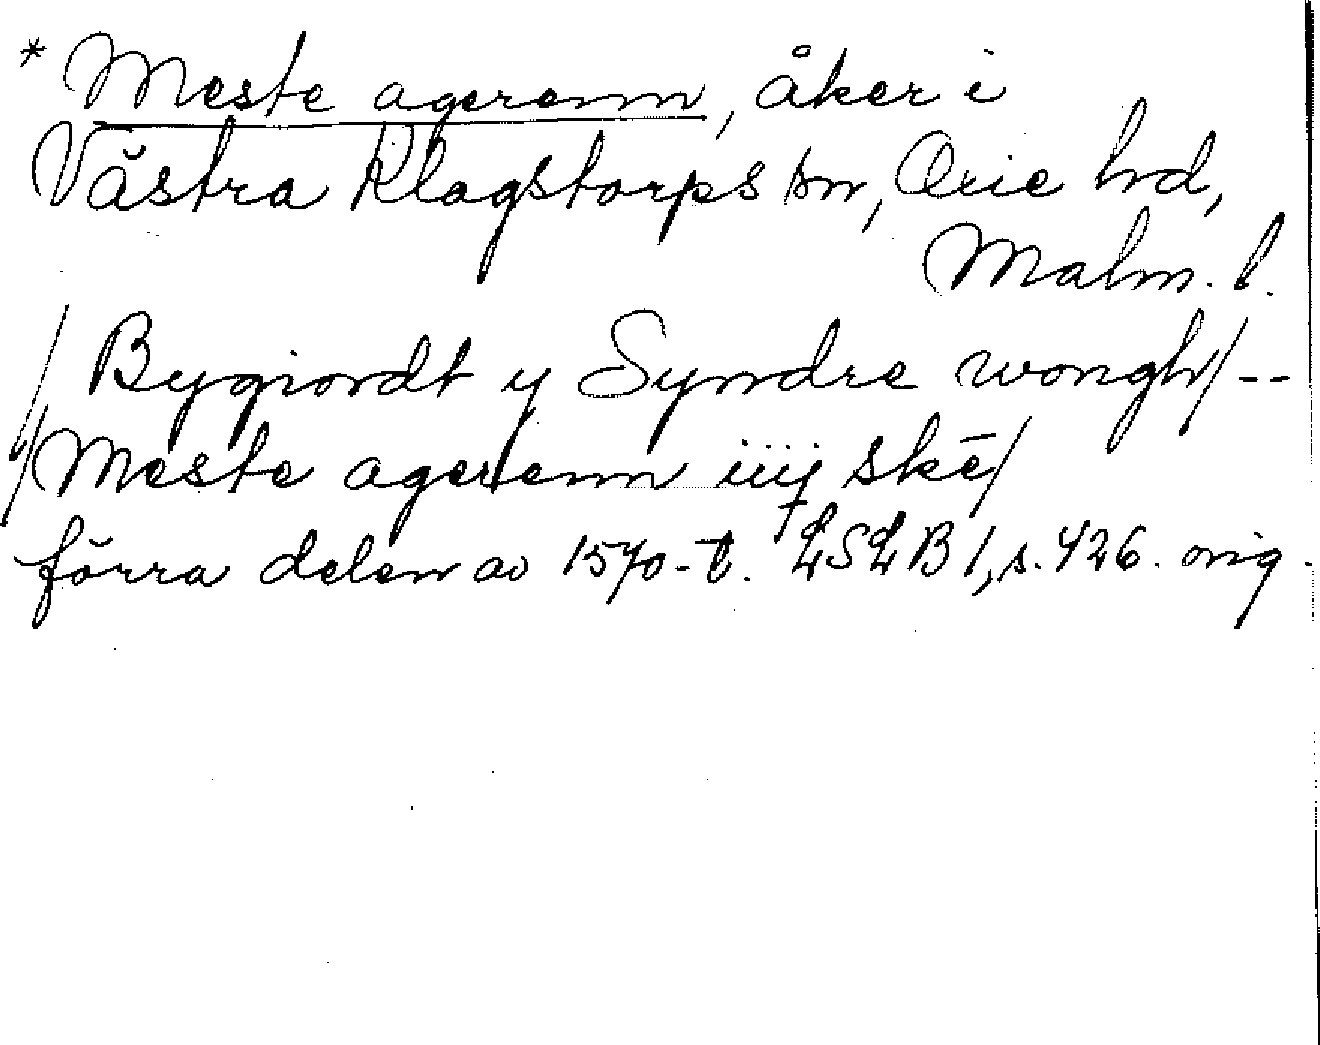 * Meste agerenn, åker i
Västra Klagstorps sn, Oxie hd,
Malm. l.
/Bygiordt y Syndre wongh/--
/Meste agerenn iiij skē/
förra delen av 1570-t. LSLB 1, s. 426. orig.